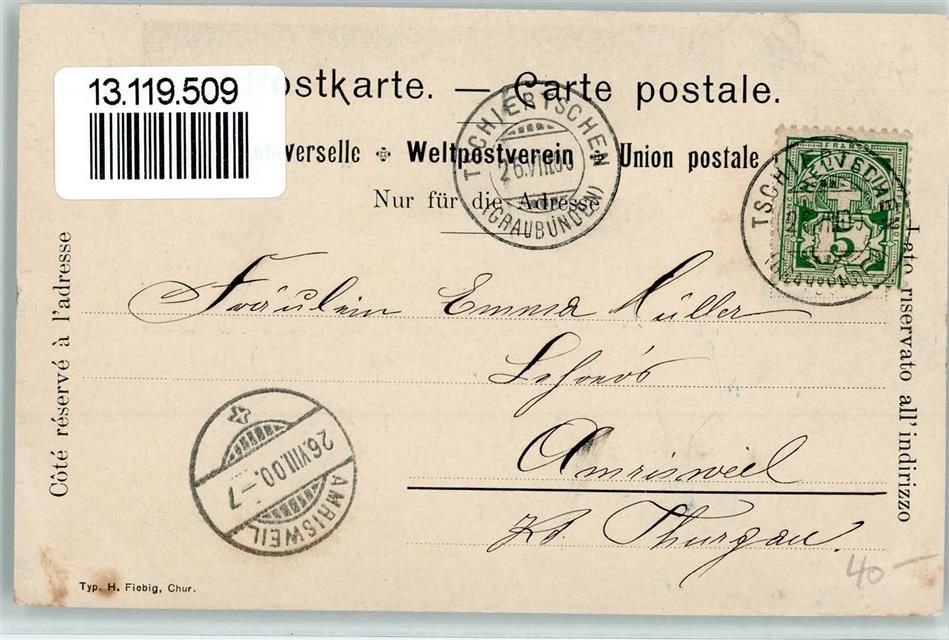 13.119.509
ostkarte. — Carte postale.
verselle ✣ Weltpostverein ✣ Union postale
Nur für die Adresse
TSCHIERTSCHEN
26.VIII.00
(GRAUBÜNDEN)
FRANCO
HELVETIA
5
Côté réservé à l'adresse
Lato riservato all' indirizzo
Fräulein Emma Müller
Amrisweil
Kt. Thurgau.
26.VIII.00.-7
AMRISWEIL
Typ. H. Fiebig, Chur.
40 -